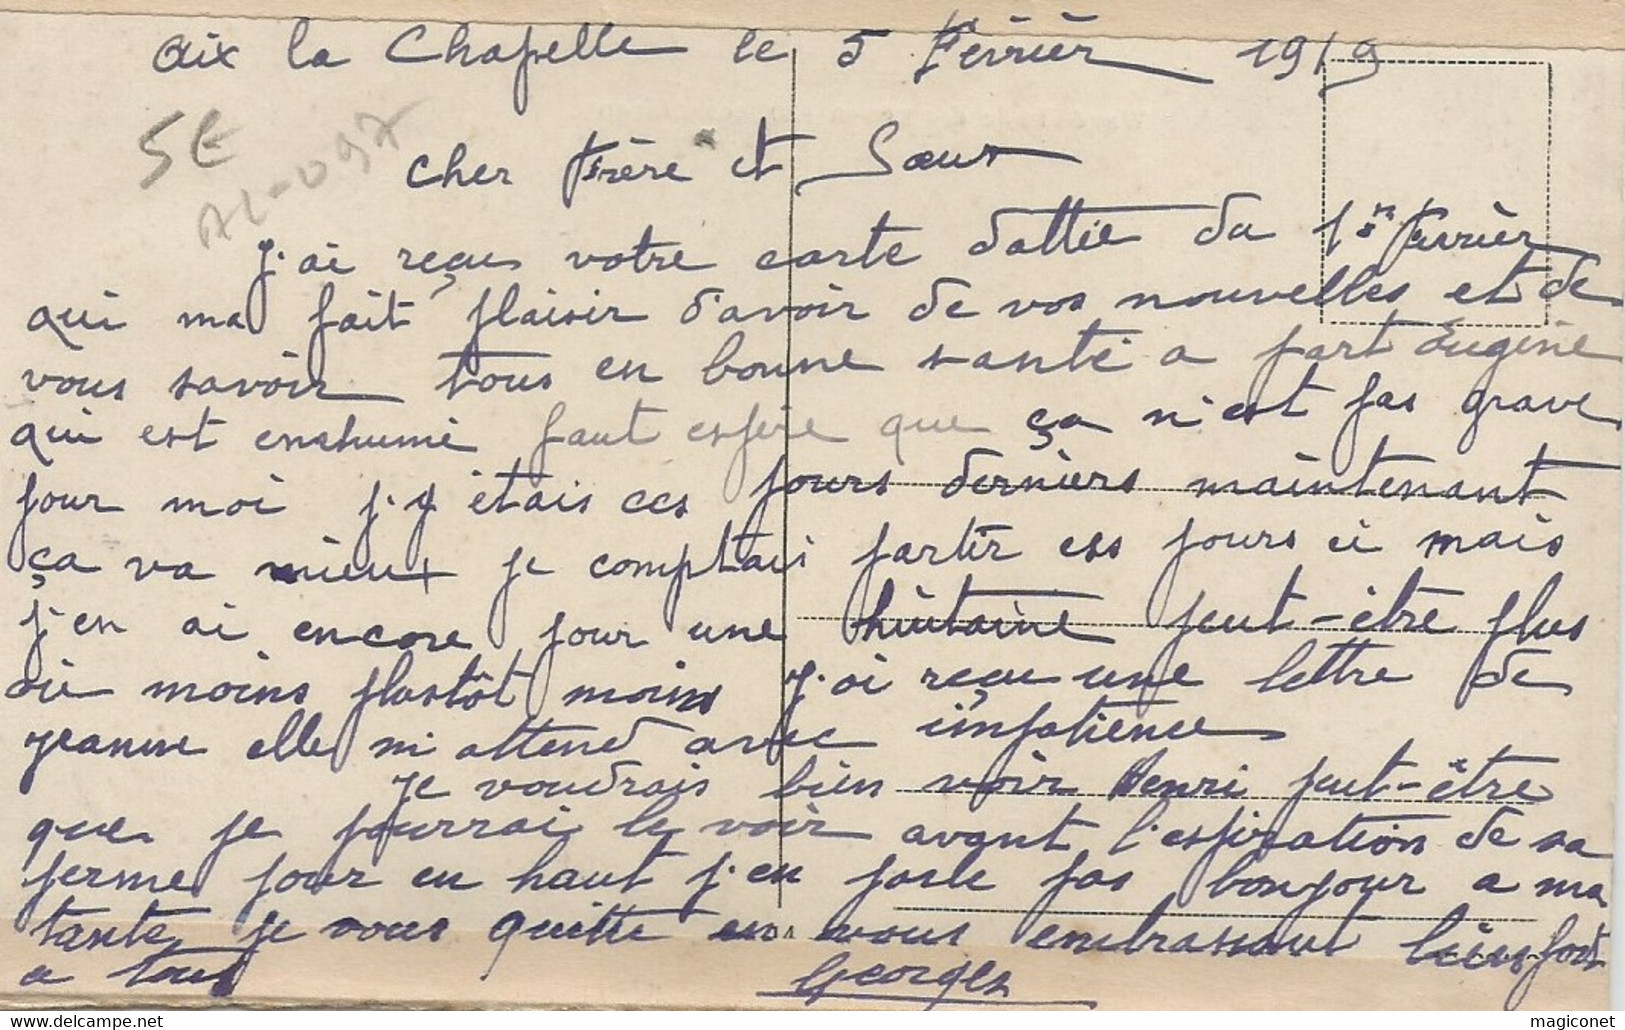 Aix la Chapelle le 5 Février 1919
5E
AL-097
Cher Frère et Soeur
J'ai reçu votre carte dattée du 1er février
qui ma fait plaisir d'avoir de vos nouvelles et de
vous savoir tous en bonne santé a part Eugène
qui est enrhumé faut espéré que ça n'est pas grave
pour moi j'y étais ces jours derniers maintenant
ça va mieux je comptais partir ces jours ci mais
j'en ai encore pour une huitaine peut-être plus
ou moins plustôt moins j'ai reçu une lettre de
Jeanne elle m'attend avec impatience
Je voudrais bien voir Henri peut-être
que je pourrai le voir avant l'espiration de sa
perme pour en haut j'en parle pas bonjour a ma
tante je vous quitte en vous embrassant bien fort
a tous
Georges
magiconet